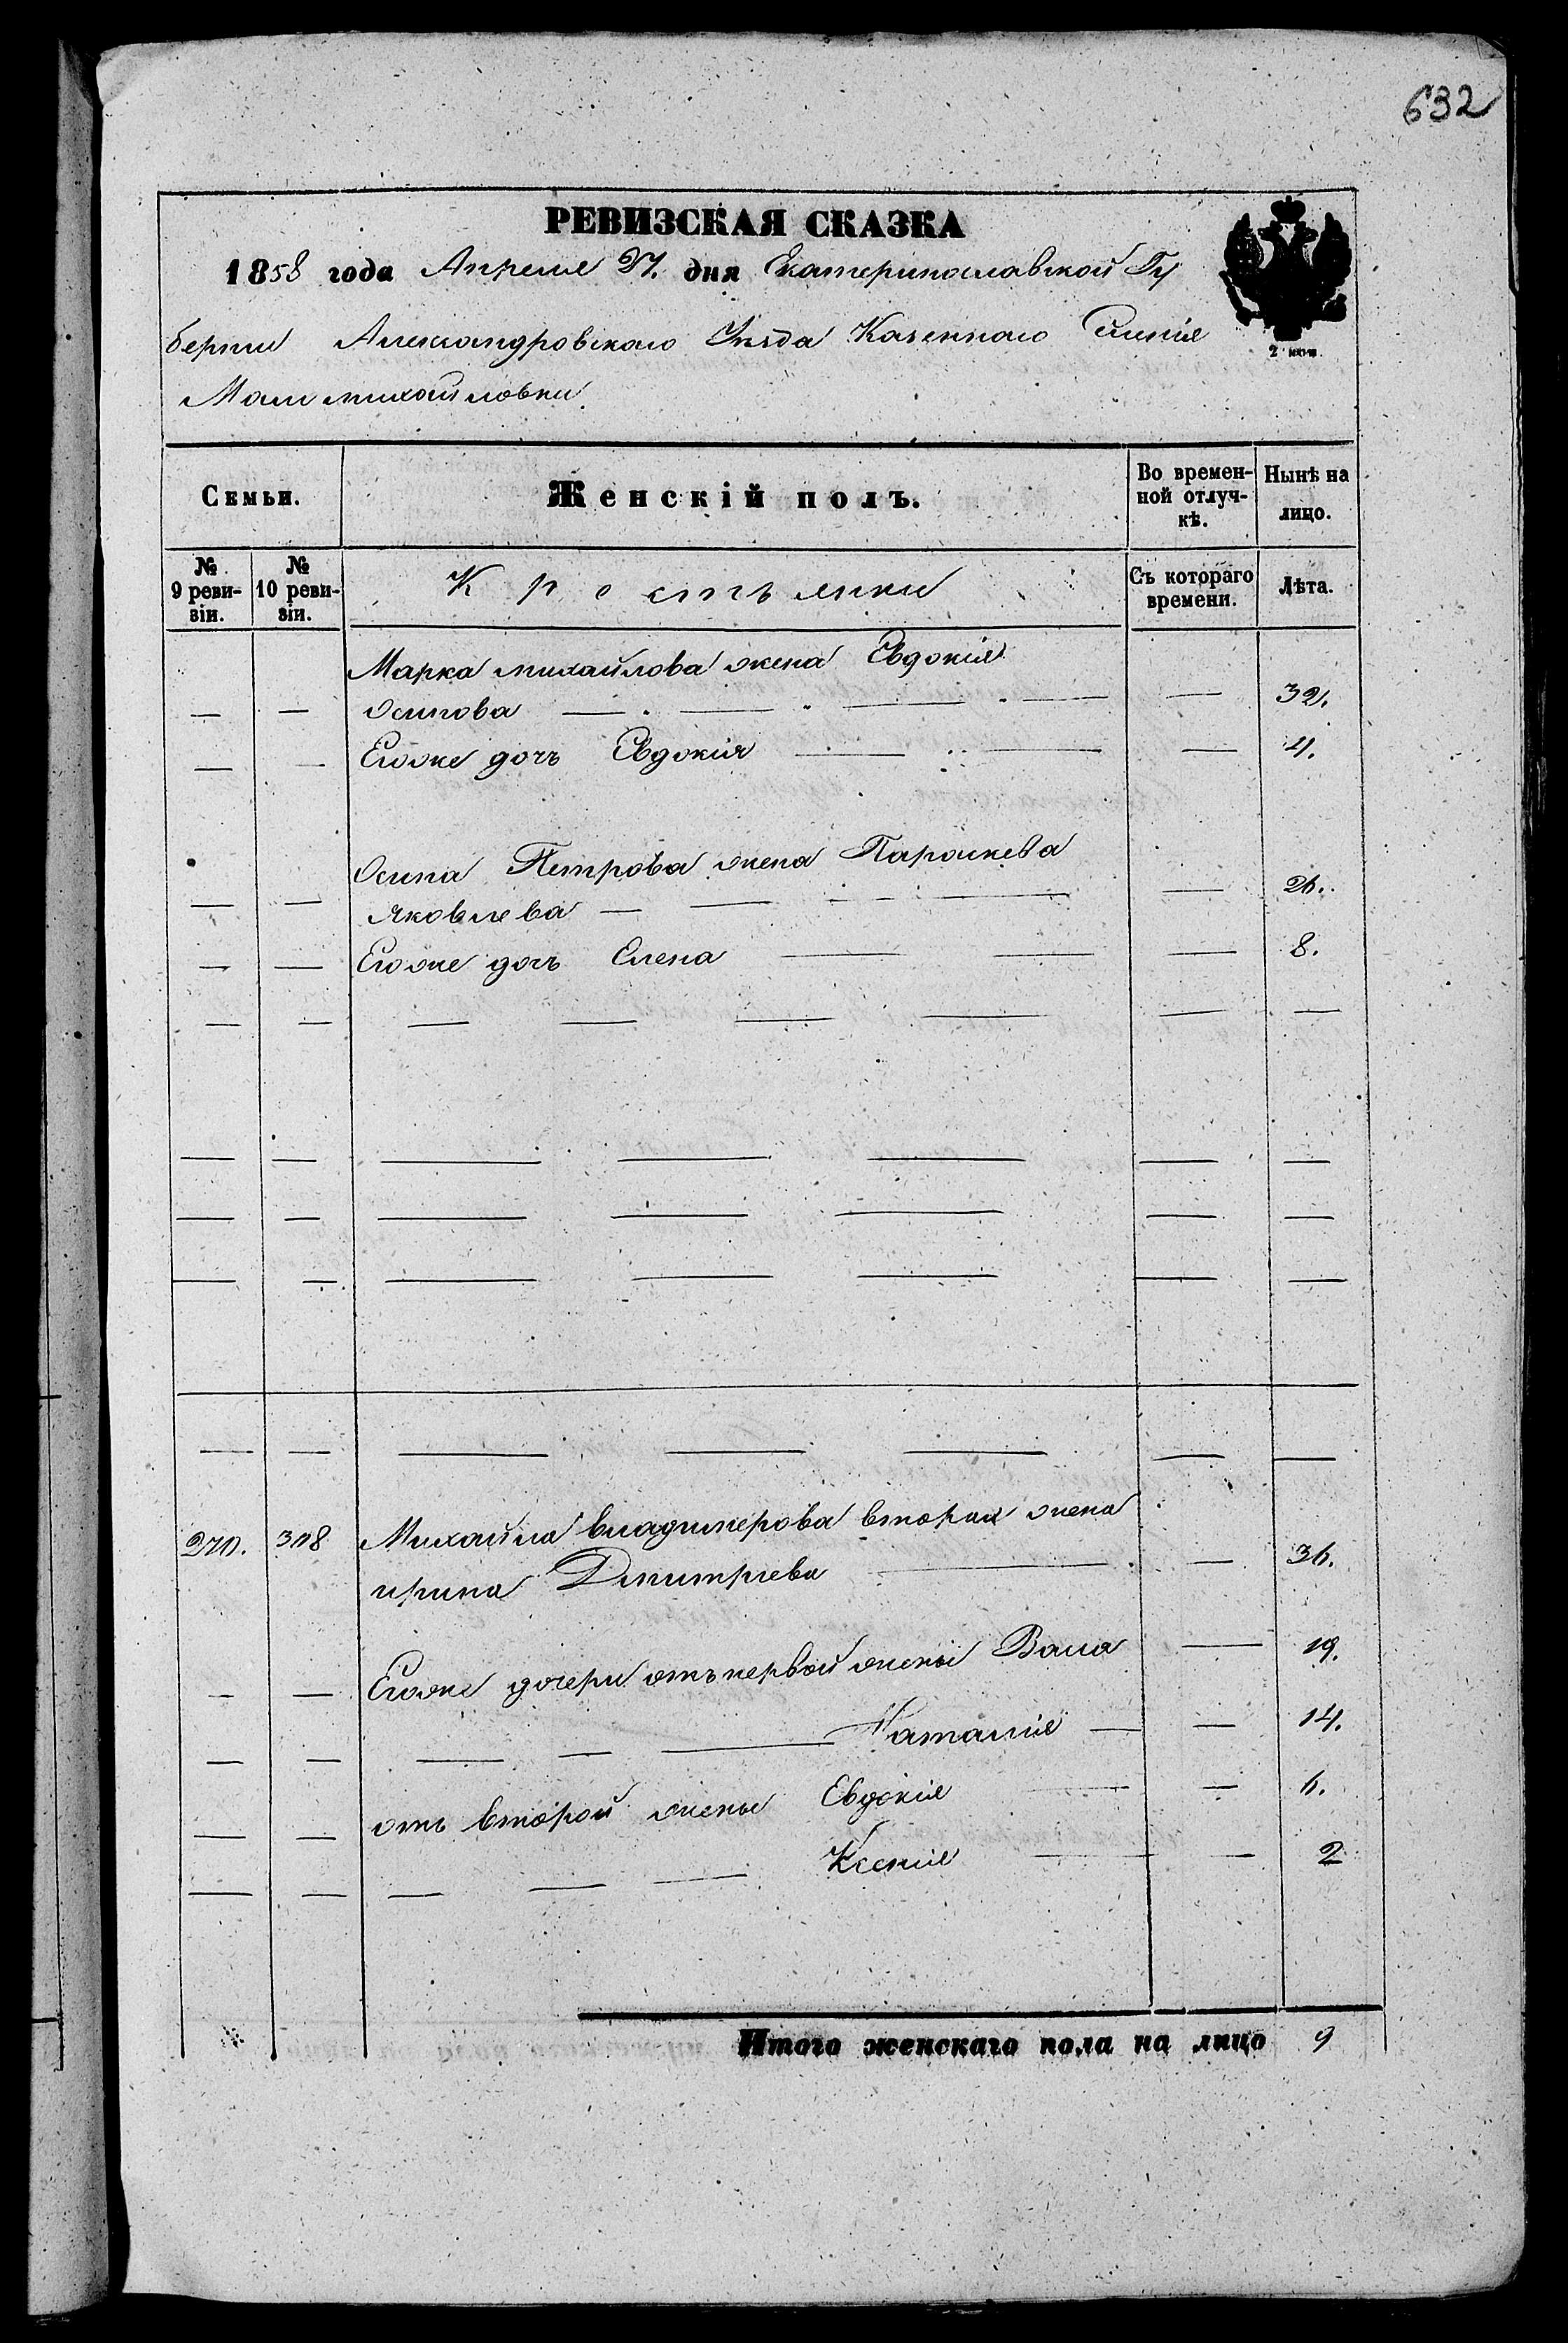 632
РЕВИЗСКАЯ СКАЗКА
1858 года Апреля 27. дня Екатеринославской Гу
берніи Александровского Уезда Казенного Селенія
Маломихайловки
Семьи. Женскій полъ. Во времен- Нынѣ на
ной отлуч- лицо.
кѣ.
№ № Крестьянки Съ котораго Лѣта.
9 реви- 10 реви- времени.
зіи. зіи.
Марка михайлова жена Евдокія
Осипова 32.
Егоже дочъ Евдокія 4.
Осипа Петрова жена Параскева
Яковлева 26.
Егоже дочъ Елена 8.
270. 308 Михайла владимерова вторая жена
ирина Дмитриева 36.
Егоже дочери отъ первой жены 19.
Наталия 14.
отъ второй жены Евдокія 6.
Ксения 2
Итого женскаго пола на лицо 9